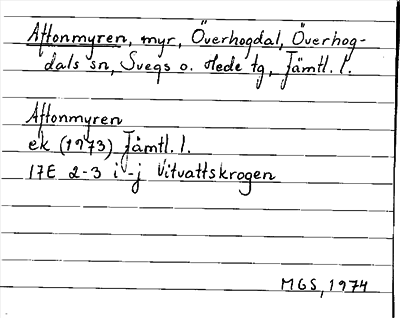 Aftonmyren, myr, Överhogdal, Överhog-
dals sn, Svegs o. Hede tg, Jämtl. l.
Aftonmyren
ek (1973) Jämtl. l.
17E 2-3 i-j Vitvattskrogen
MGS, 1974